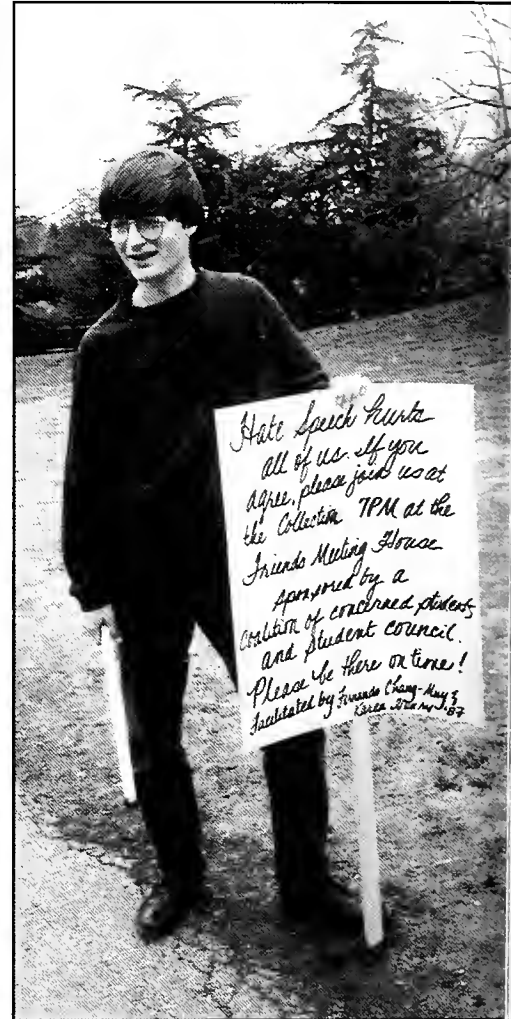 Hate Speech hurts
all of us. If you
agree, please join us at
the Collection 7PM at the
Friends Meeting House
sponsored by a
Coalition of concerned students
and student council.
Please be there on time!
Facilitated by Fernando Chang-Muy &
Karen '87